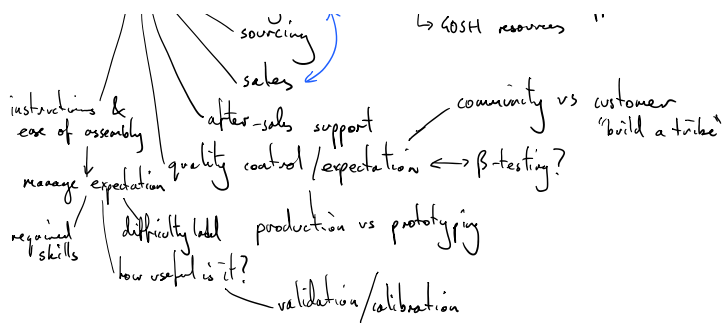 sourcing
↳ GOSH resources "
sales
instructions &
ease of assembly
after-sales support
community vs customer
"build a tribe"
quality control / expectation ↔ β-testing?
manage expectation
required
skills
difficulty label
production vs prototyping
how useful is it?
validation/calibration